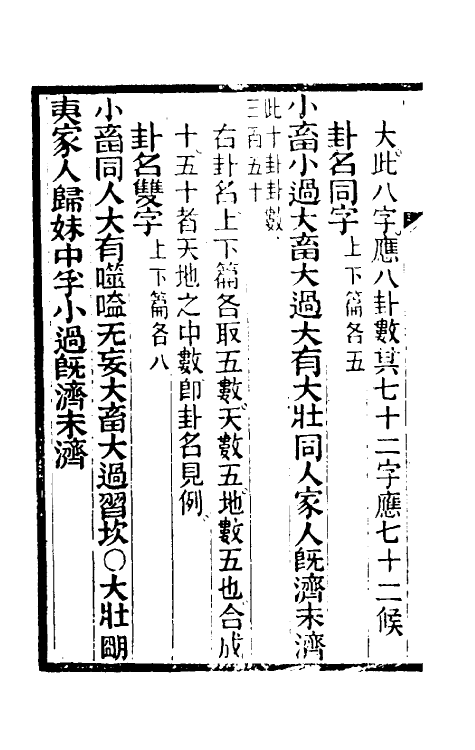 大此八字應八卦數其七十二字應七十二候
卦名同字上下篇各五
小畜小過大畜大過大有大壯同人家人旣濟未濟
此十卦卦數
三百五十
右卦名上下篇各取五數天數五地數五也合成
十五十者天地之中數卽卦名見例
卦名雙字上下篇各八
小畜同人大有噬嗑无妄大畜大過習坎○大壯明
夷家人歸妹中孚小過旣濟未濟